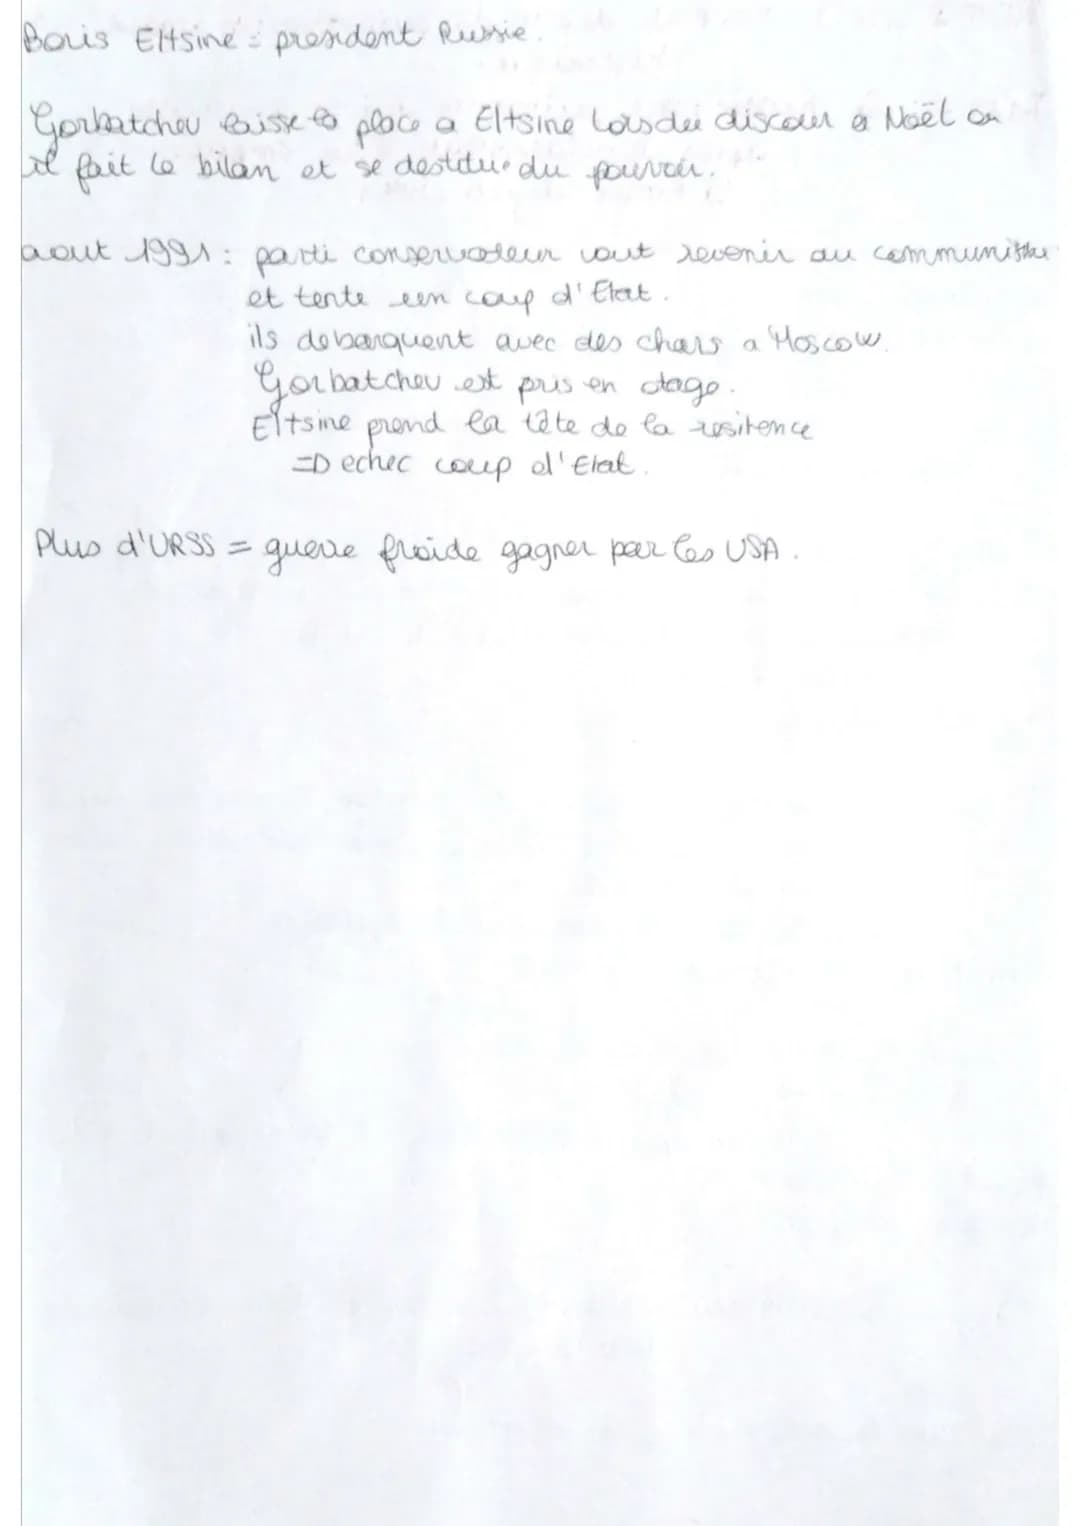 Boris Eltsine = president Russie.
Gorbatchev laisse la place a Eltsine lors du discour a Noël ou
il fait le bilan et se destitue du pouvoir.
aout 1991 : parti conservateur veut revenir au communisme
et tente un coup d'Etat.
ils debarquent avec des chars a Moscow.
Gorbatchev est pris en otage.
Eltsine prend la tête de la resitence
=D echec coup d'Etat.
Plus d'URSS = guerre froide gagner par les USA.